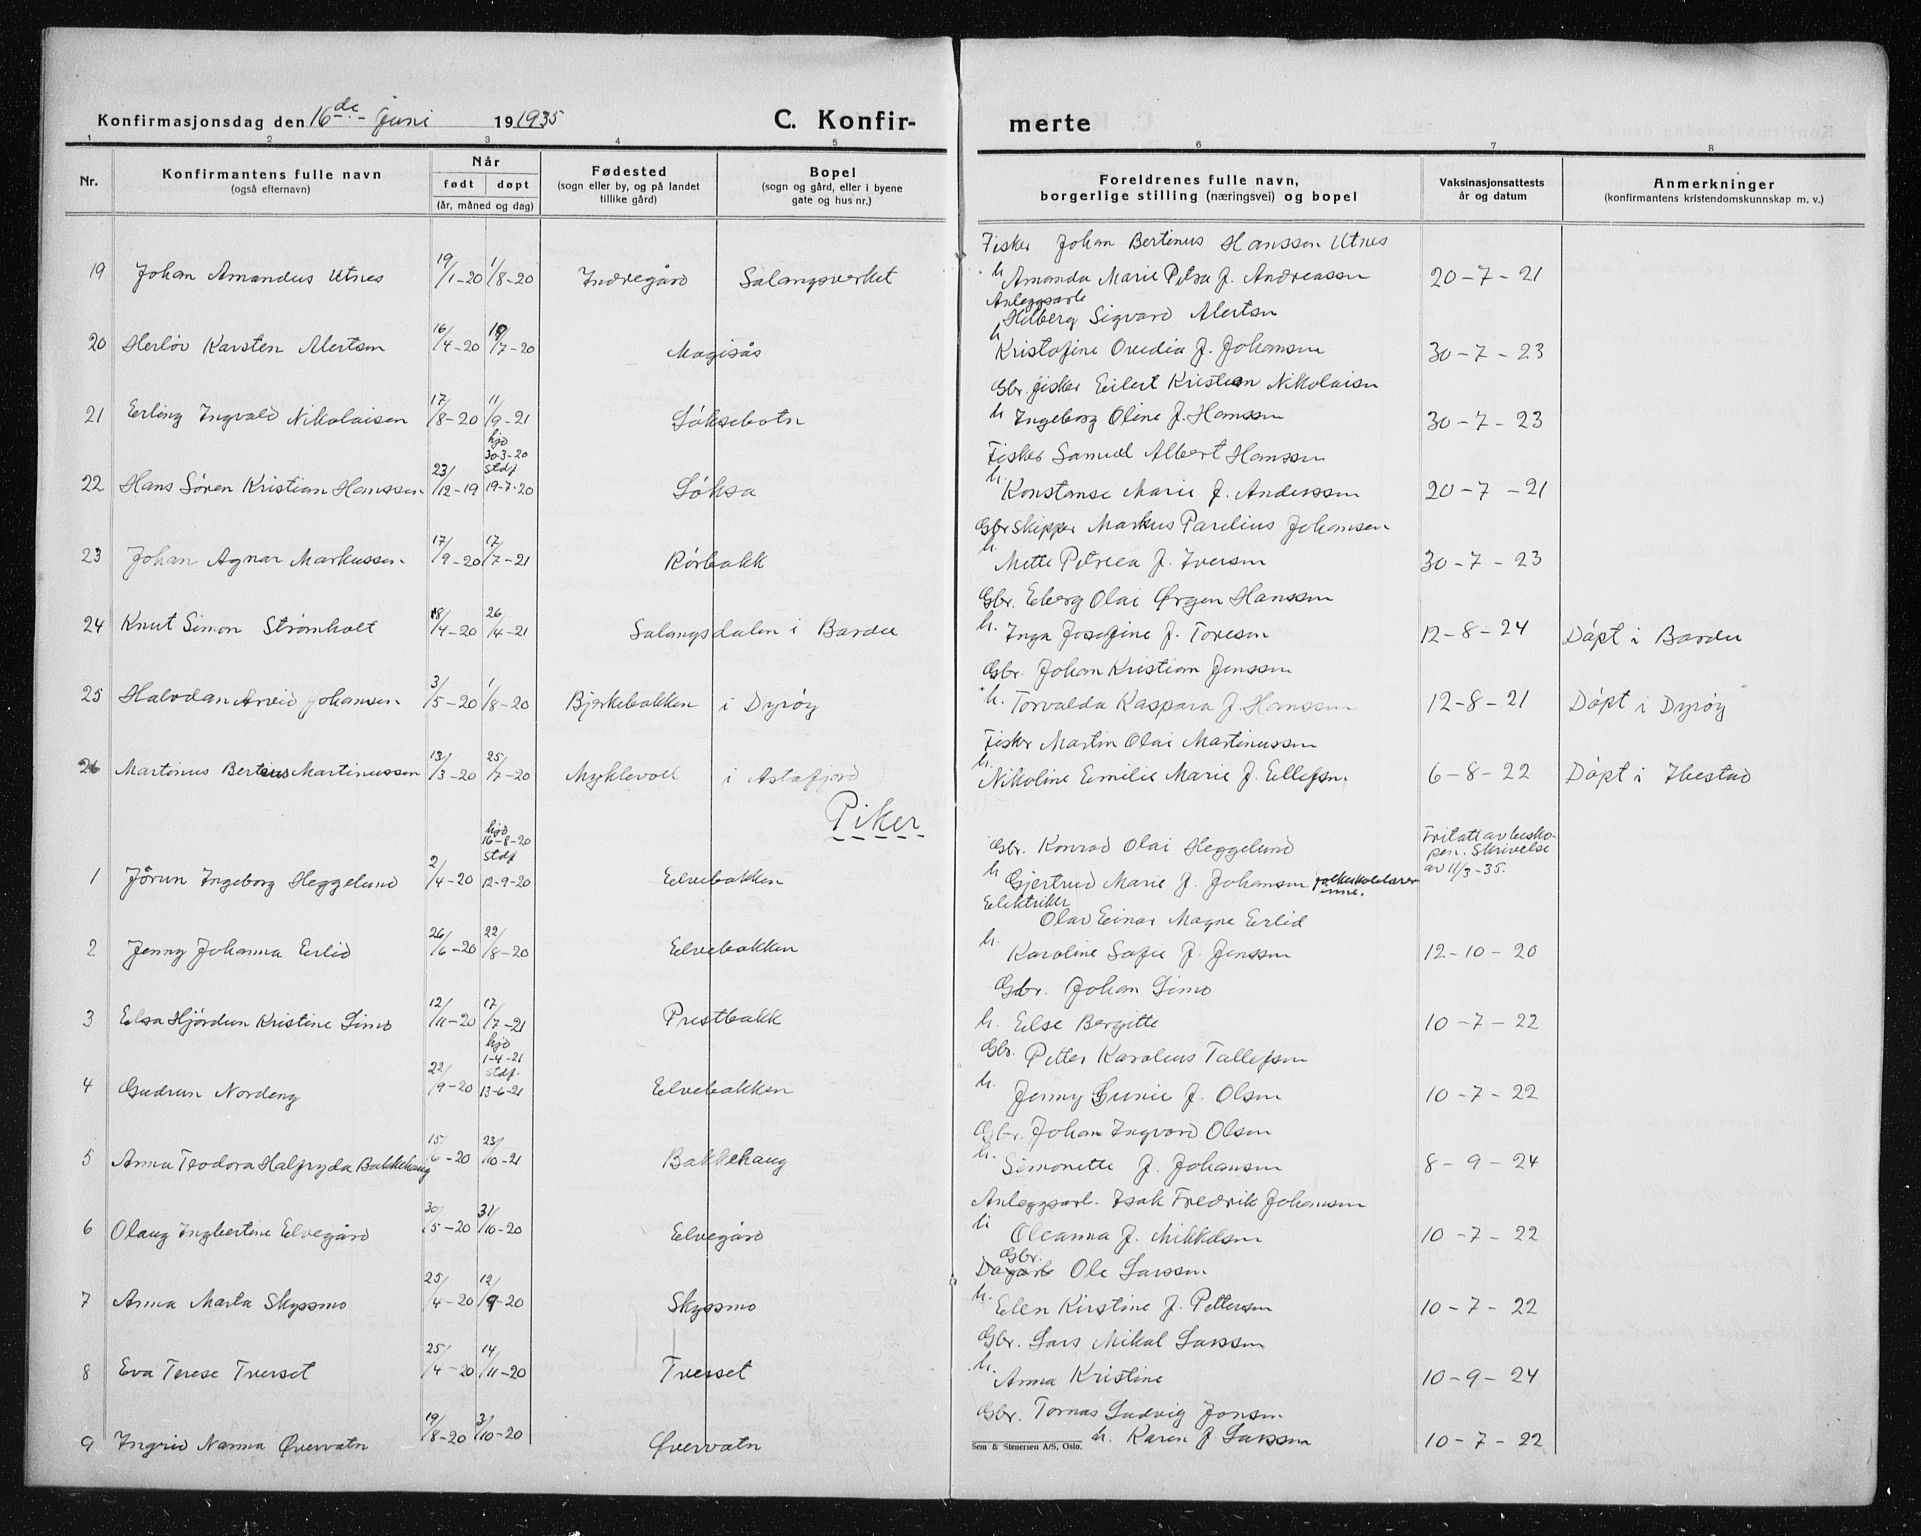 Konfirmasjonsdag den 16de juni 19 1935 C. Konfir- merte
1 2 3 4 5 6 7 8
Nr. Konfirmantens fulle navn (også efternavn) Når født døpt (år, måned og dag) Fødested (sogn eller by, og på landet tillike gård) Bopel (sogn og gård, eller i byene gate og hus nr.) Foreldrenes fulle navn, borgerlige stilling (næringsvei) og bopel Vaksinasjonsattests år og datum Anmerkninger (konfirmantens kristendomskunnskap m. v.)
Fisker Johan Bertinus Hanssen Utnes
19 Johan Amandus Utnes 19/1-20 1/8-20 Indregård Salangsverket h. Amanda Marie Petra f. Andreassen 20-7-21
Anleggsarb Hilberg Sigvard Alertsen
20 Herløv Karsten Alertsen 16/4-20 /7-20 Magisås h Kristofine Ovedia f. Johansen 30-7-23
Gbr. fisker Eilert Kristian Nikolaisen
21 Erling Ingvald Nikolaisen 17/8-20 11/9-21 Løksebotn h Ingeborg Oline f. Hanssen 30-7-23
Fisker Samuel Albert Hanssen
22 Hans Søren Kristian Hanssen 23/12-19 hjd 30-3-20 stdf 19-7-20 Løksa h. Konstanse Marie f. Anderssen 20-7-21
Gbr skipper Markus Parelius Johansen
23 Johan Agnar Markussen 17/9-20 17/7-21 Rørbakk h. Mette Petrea f. Iversen 30-7-23
Gbr. Eberg Olai Ørgen Hanssen
24 Knut Simon Strømholt 18/4-20 26/4-21 Salangsdalen i Bardu h. Inga Josefine f. Toresen 12-8-24 Døpt i Bardu
Gbr. Johan Kristian Jenssen
25 Halvdan Arvid Johansen 3/5-20 1/8-20 Bjerkebakken i Dyrøy h. Torvalda Kaspara f. Hanssen 12-8-21 Døpt i Dyrøy
Fisker Martin Olai Martinussen
26 Martinus Berteus Martinussen 13/3-20 25/7-20 Myklevoll i Astafjord h. Nikoline Emilie Marie f. Ellefsen. 6-8-22 Døpt i Ibestad
Piker
Gbr. Konrad Olai Heggelund
1 Jørun Ingeborg Heggelund 2/4-20 hjd 16-8-20 stdf 12-9-20 Elvebakken h Gjertrud Marie f. Johansen folkeskolelærerinne. Fritatt av biskopen. Skrivelse av 11/3-35.
Elektriker Olav Einar Magne Erlid
2 Jenny Johanna Erlid 26/6-20 22/8-20 Elvebakken h. Karoline Sofie f. Jenssen 12-10-20
Gbr. Johan Simo
3 Elsa Hjørdun Kristine Simo 12/11-20 17/7-21 Prestbakk h. Else Bergitte 10-7-22
Gbr. Petter Karolius Tallefsen
4 Gudrun Nordeng 22/9-20 hjd 1-4-21 stdf. 13-6-21 Elvebakken h. Jenny f. Olsen 10-7-22
Gbr. Johan Ingvard Olsen
5 Anna Teodora Halfryda Bakkehaug 15/6-20 23/10-21 Bakkehaug h. Simonette f. Johansen 8-9-24
Anleggsarb. Isak Fredrik Johansen
6 Olaug Ingbertine Elvegård 30/5-20 31/10-20 Elvegård h Oleanna f. Mikkelsen 10-7-22
Dagarb Gbr. Ole Larssen
7 Anna Marta Skyssmo 25/4-20 12/9-20 Skyssmo h. Elen Kirstine f. Pettersen 10-7-22
Gbr. Lars Mikal Larssen
8 Eva Terese Tverset 25/4-20 14/11-20 Tverset h. Anna Kristine 10-9-24
Gbr. Tomas Ludvig Jonsen
9 Ingrid Nanna Øvervatn 19/8-20 3/10-20 Øvervatn h. Karen f. Larssen 10-7-22
Sem & Stenersen A/S, Oslo.